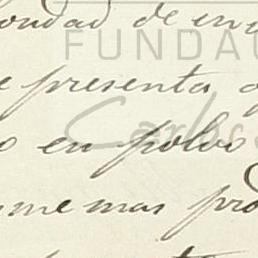 ondad de en
FUNDA
e presenta
Carlos
o en polvo
me mas pro